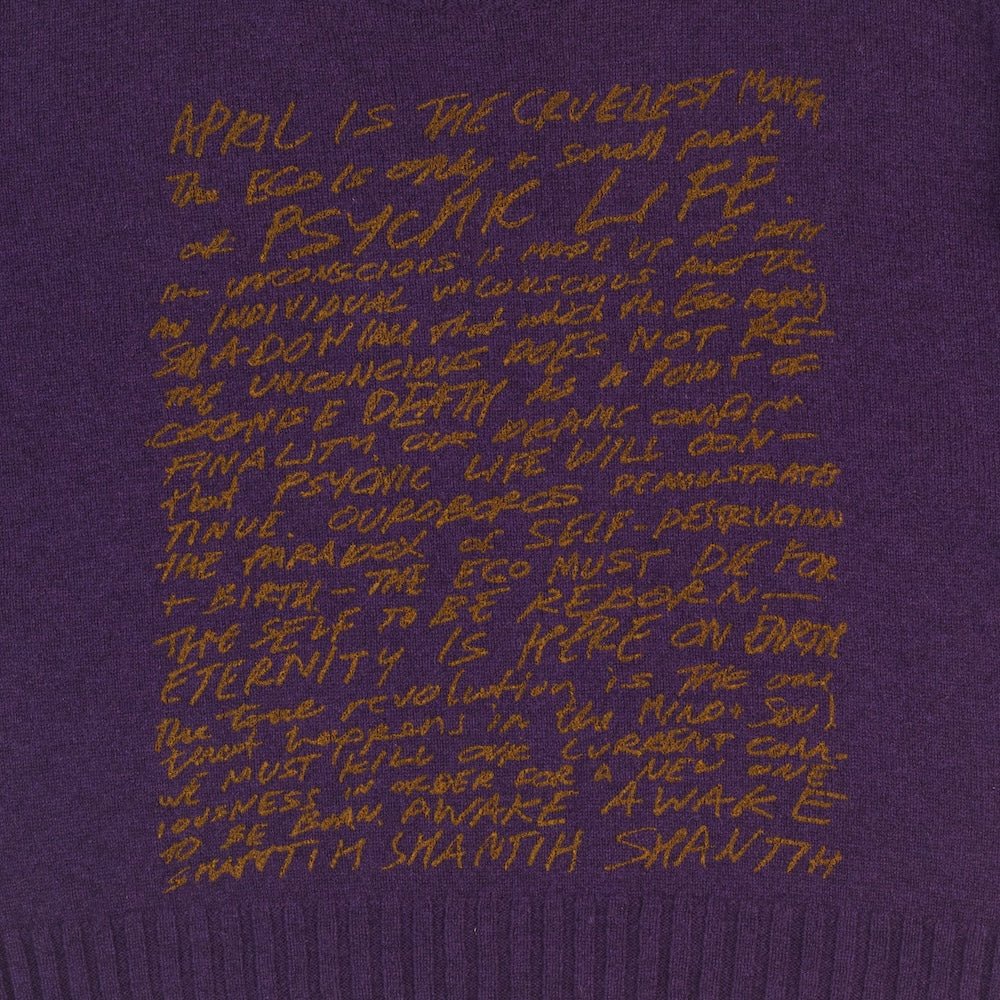 APRIL IS THE CRUELEST MONTH
The EGO IS only a small part
of PSYCHIC LIFE.
The UNCONSCIOUS IS MADE UP OF both
AN INDIVIDUAL UNCONSCIOUS AND the
SHADOW (All that which the EGO rejects)
THE UNCONCIOUS DOES NOT RE-
COGNIZE DEATH AS A POINT OF
FINALITY. OUR DREAMS CONFIRM
that PSYCHIC LIFE WILL CON-
TINUE. OUROBOROS DEMONSTRATES
THE PARADOX of SELF-DESTRUCTION
+ BIRTH - THE EGO MUST DIE FOR
THE SELF TO BE REBORN. -
ETERNITY IS HERE ON EARTH
The true revolution is THE one
that happens in the MIND + SOUL
WE MUST KILL OUR CURRENT CONC-
IOUSNESS IN ORDER FOR A NEW ONE
TO BE BORN AWAKE AWAKE
SHANTIH SHANTIH SHANTIH